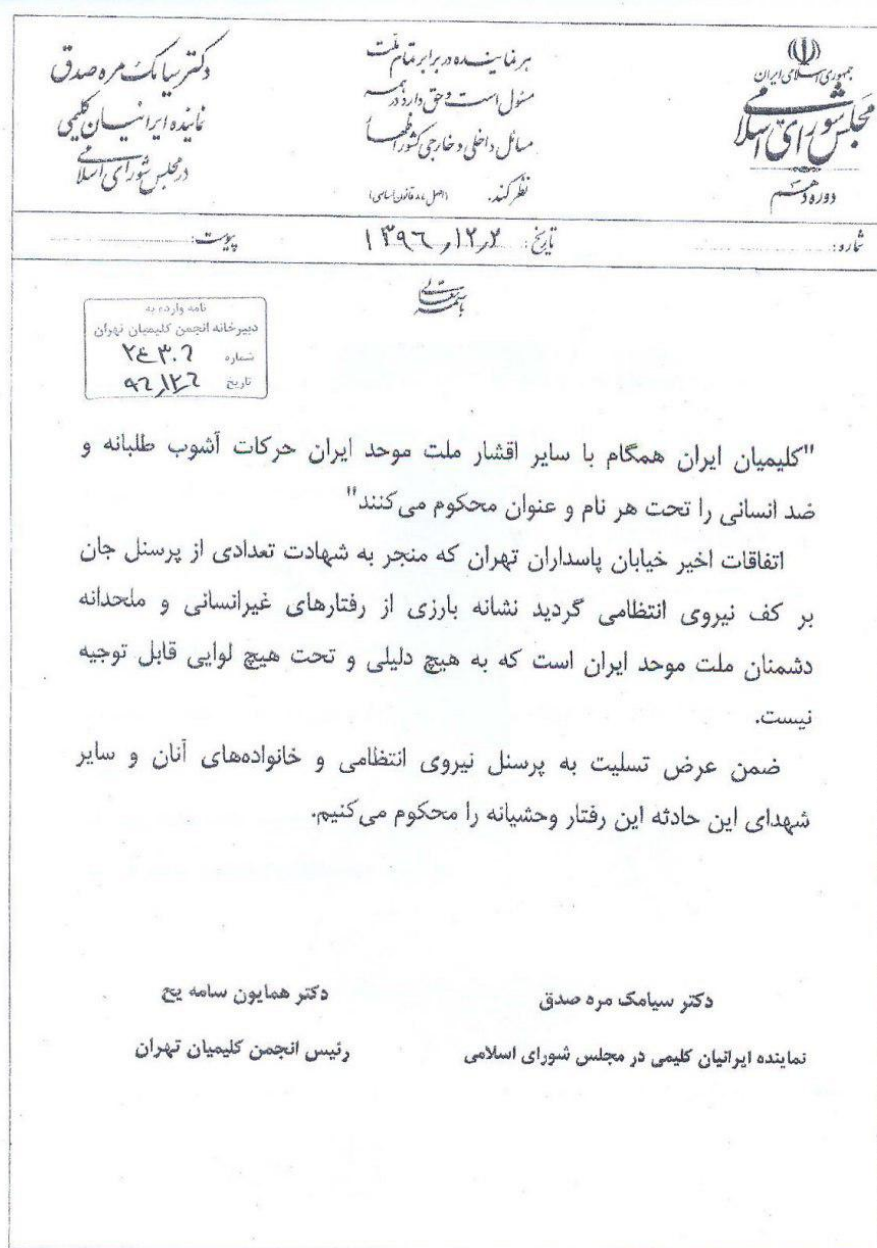 جمهوری اسلامی ایران
مجلس شورای اسلامی
دوره دهم
هر نماینده در برابر تمام ملت
مسئول است و حق دارد در همه
مسائل داخلی و خارجی کشور اظهار
نظر کند.
دکتر سیامک مره صدق
نماینده ایرانیان کلیمی
در مجلس شورای اسلامی
شماره:
تاریخ: ۱۳۹۶,۱۲,۲
پیوست:
باسمه تعالی
نامه وارده به
دبیرخانه انجمن کلیمیان تهران
شماره ۲۴۳۰۶
تاریخ ۹۶,۱۲,۶
"کلیمیان ایران همگام با سایر اقشار ملت موحد ایران حرکات آشوب طلبانه و
ضد انسانی را تحت هر نام و عنوان محکوم می‌کنند"
اتفاقات اخیر خیابان پاسداران تهران که منجر به شهادت تعدادی از پرسنل جان
بر کف نیروی انتظامی گردید نشانه بارزی از رفتارهای غیرانسانی و ملحدانه
دشمنان ملت موحد ایران است که به هیچ دلیلی و تحت هیچ لوایی قابل توجیه
نیست.
ضمن عرض تسلیت به پرسنل نیروی انتظامی و خانواده‌های آنان و سایر
شهدای این حادثه این رفتار وحشیانه را محکوم می‌کنیم.
دکتر سیامک مره صدق
نماینده ایرانیان کلیمی در مجلس شورای اسلامی
دکتر همایون سامه یح
رئیس انجمن کلیمیان تهران